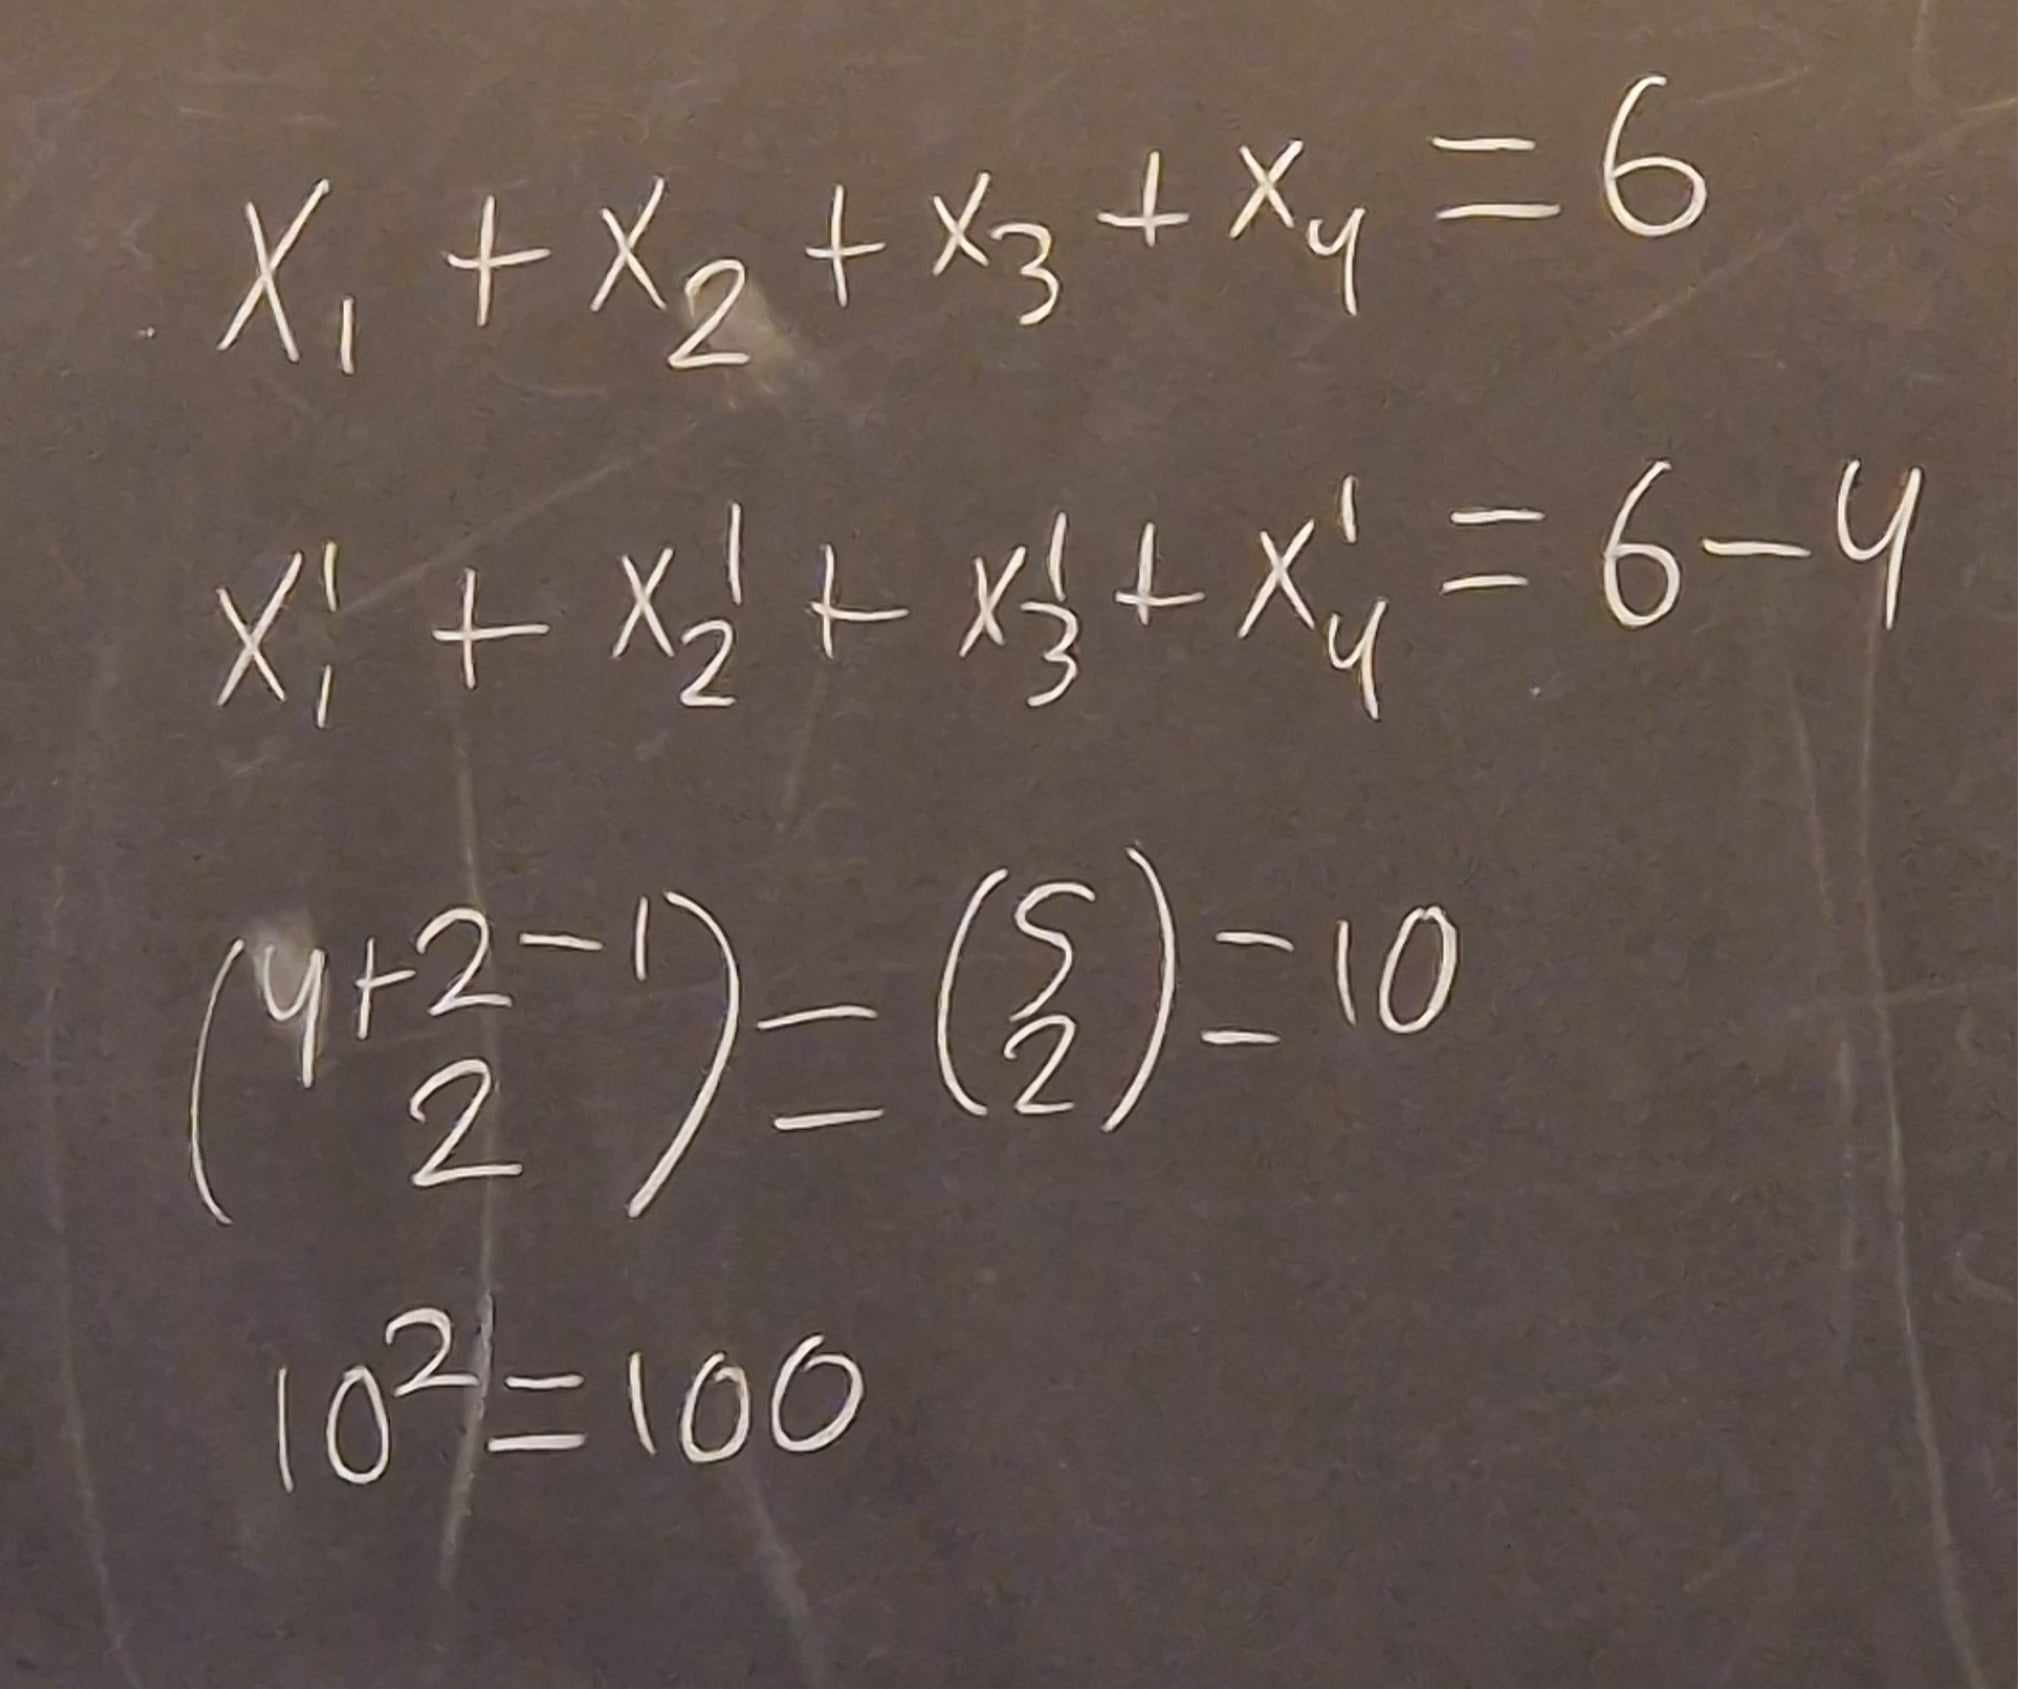 x₁ + x₂ + x₃ + x₄ = 6
x₁' + x₂' + x₃' + x₄' = 6 - 4
(4+2-1 2) = (5 2) = 10
10² = 100